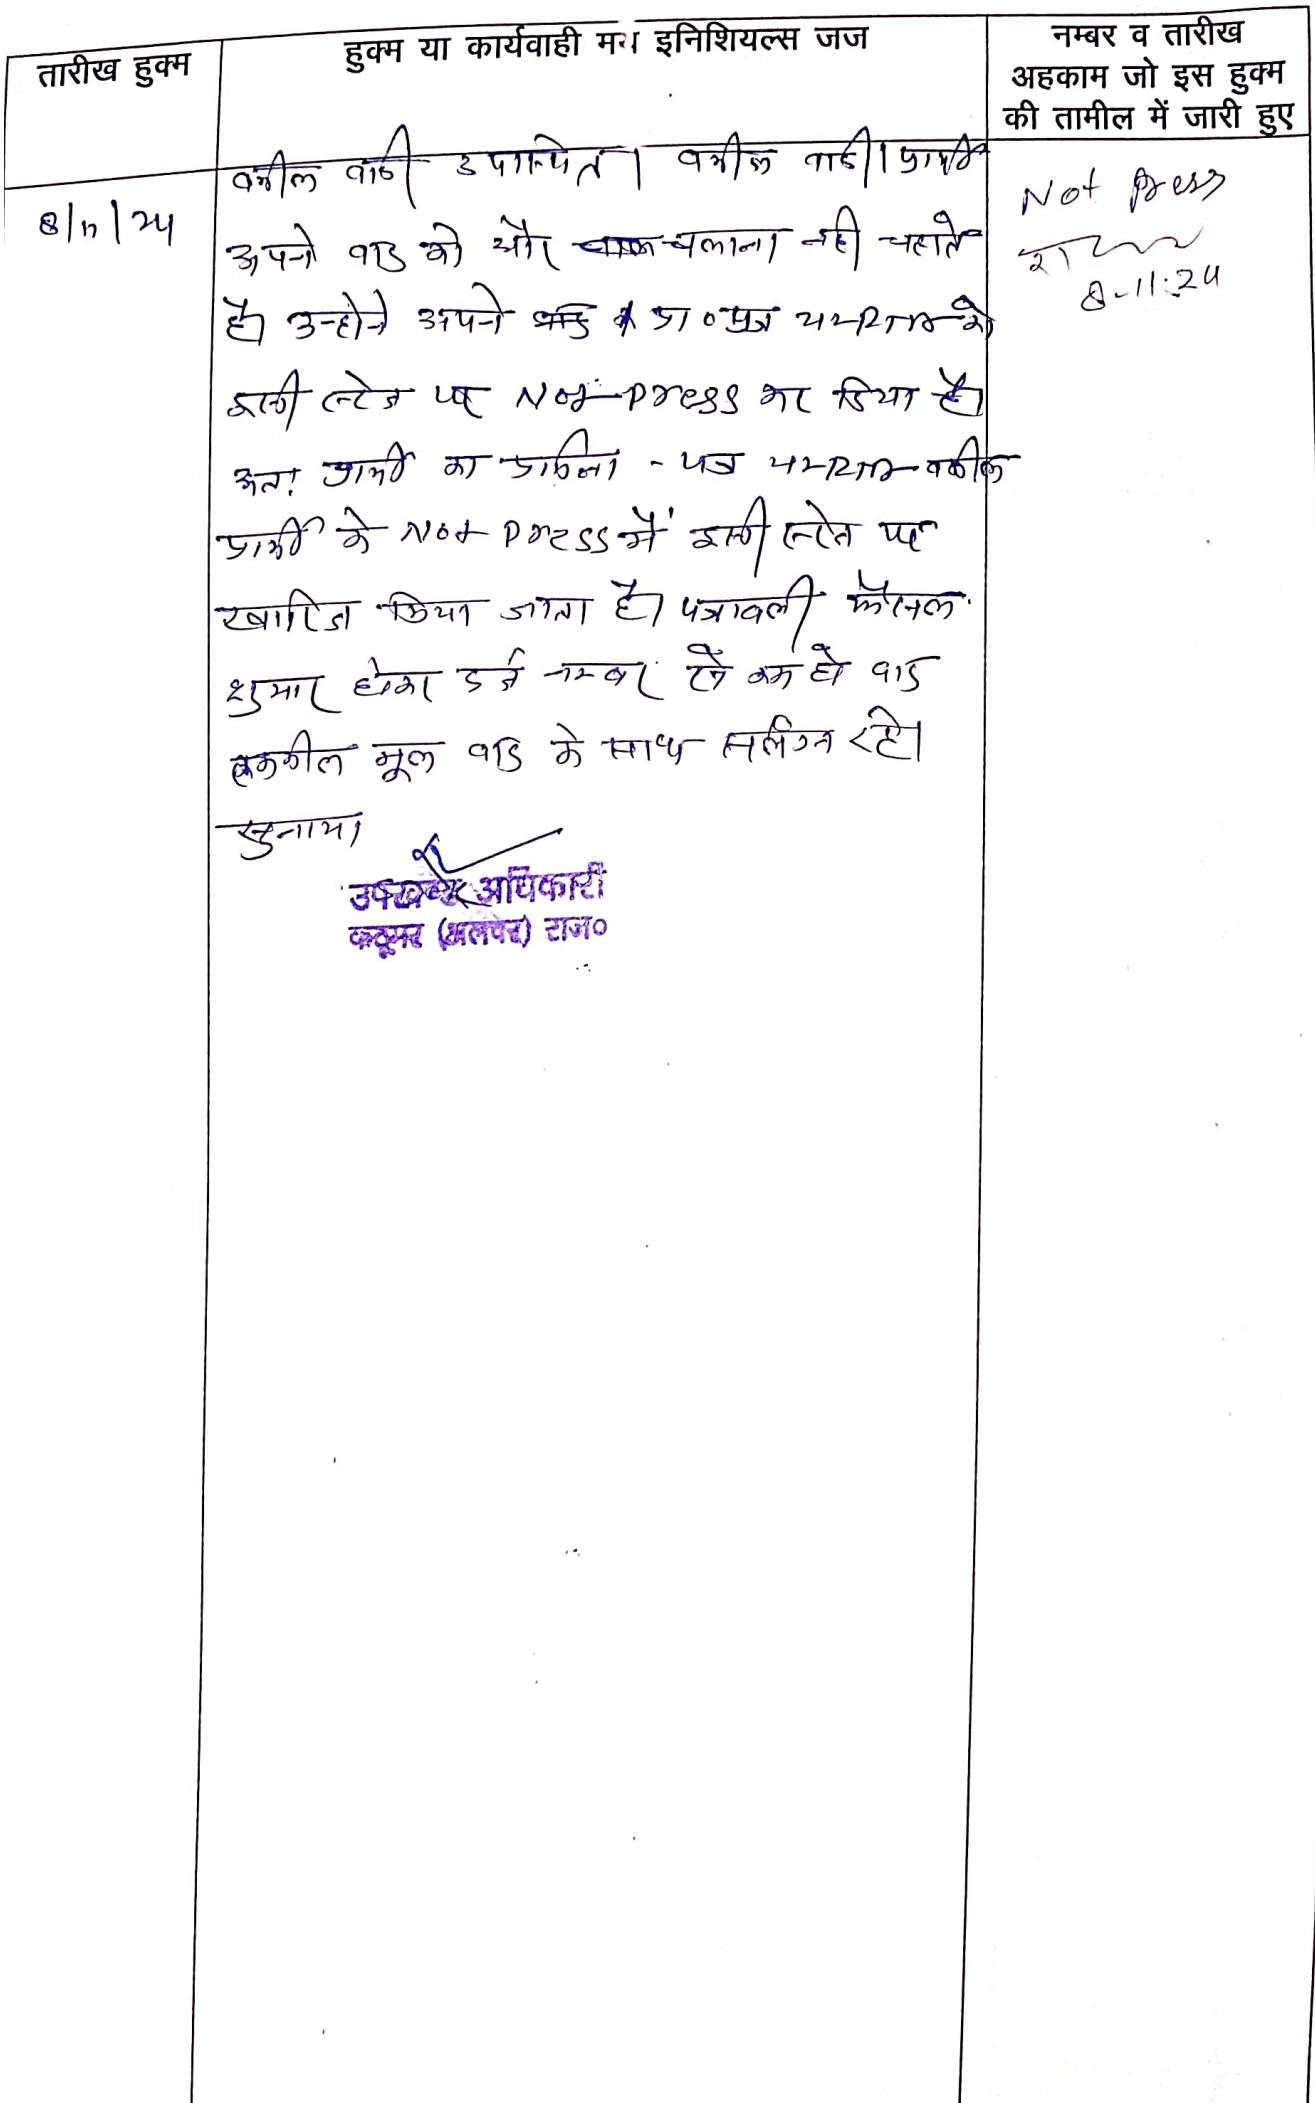 तारीख हुक्म
हुक्म या कार्यवाही मय इनिशियल्स जज
नम्बर व तारीख
अहकाम जो इस हुक्म
की तामील में जारी हुए
8/11/24
वकील वादी उपस्थित। वकील वादी/प्रार्थी
अपने वाद को और चलाना नही चहाते
है। उन्होने अपने प्रा०पत्र को
इसी स्टेज पर Not-press कर दिया है।
अतः प्रार्थी का प्रार्थना-पत्र वकील
प्रार्थी के Not Press में इसी स्टेज पर
खारिज किया जाता है। पत्रावली फैसल
शुमार होकर दर्ज नम्बर से कम हो वाद
तकमील मूल वाद के साथ संलग्न रहे।
सुनाया
उपखण्ड अधिकारी
कठूमर (अलवर) राज०
Not Press
8-11-24